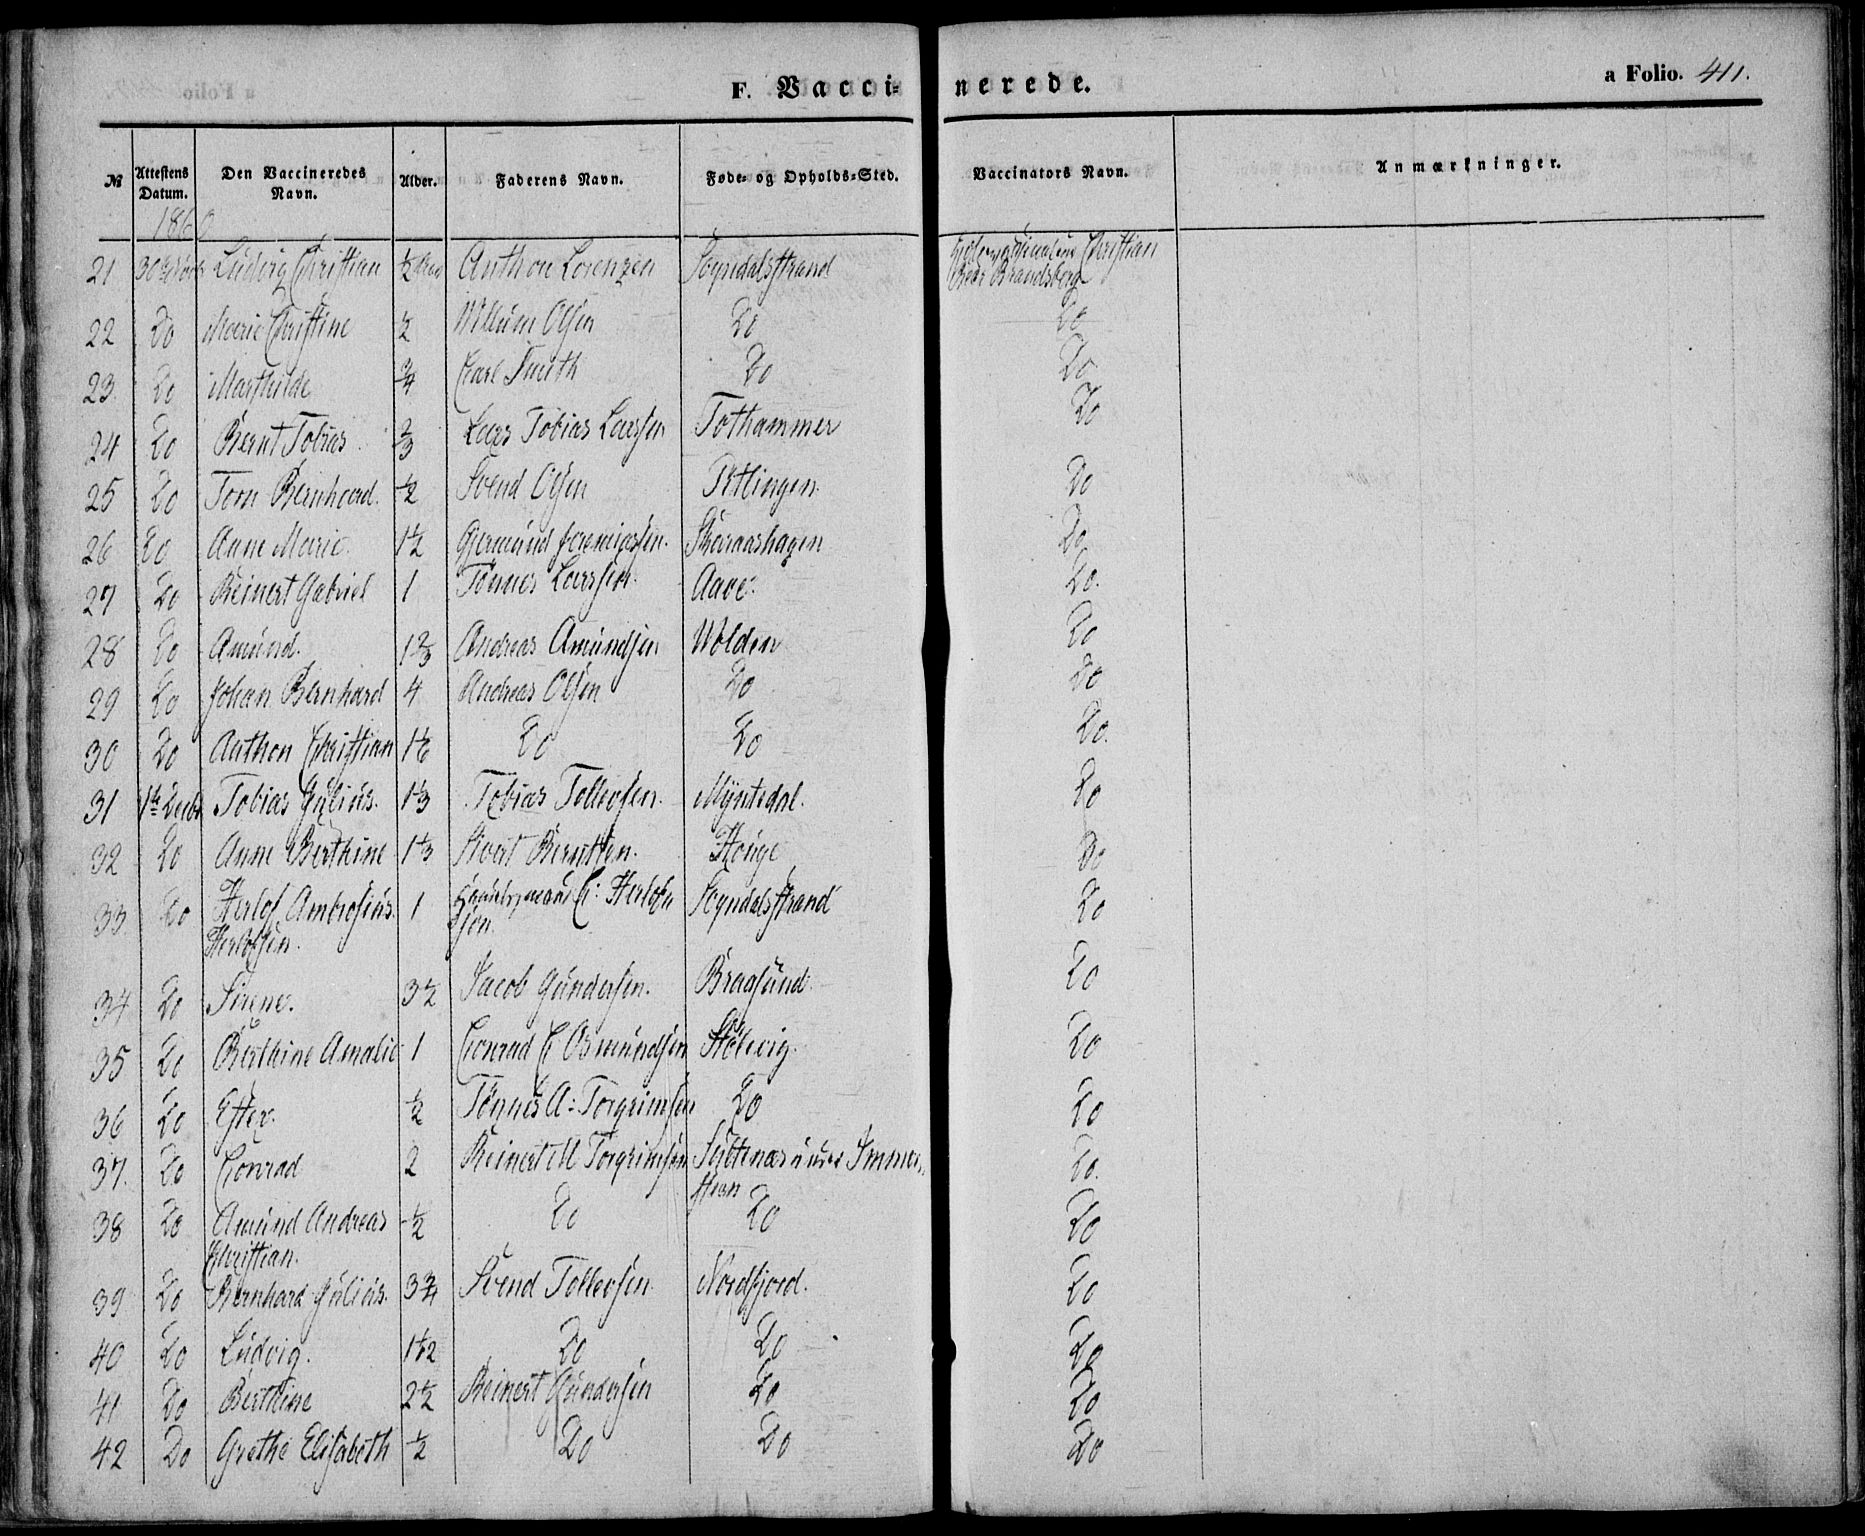 F. Vacci- nerede. a Folio. 411.
№ Attestens Datum. Den Vaccineredes Navn. Alder. Faderens Navn. Føde- og Opholds-Sted. Vaccinators Navn. Anmærkninger.
1860
21 30 Ludvig Christian ½ Anthon Lorenzen Sogndalsstrand Christian Brandsberg
22 Do Marie Christine ½ Willum Olsen Do Do
23 Do Mathilde ¾ Carl Smith Do Do
24 Do Bernt Tobias ⅔ Lars Tobias Larsen Tothammer Do
25 Do Tom Bernhard. ½ Svend Olsen Do
26 Do Anne Marie. 1½ Gjermund Jeremiassen. Skaraashagen Do
27 Do Reinert Gabriel 1 Tønnes Larssen. Aave. Do.
28 Do Amund. 1⅔ Andreas Amundsen Wolden Do
29 Do Johan Bernhard 4 Andreas Olsen Do Do
30 Do Anthon Christian 1⅙ Do Do Do.
31 1te Decbr Tobias Julius. 1⅓ Tobias Tollevsen. Myntedal. Do
32 Do Anne Berthine 1⅓ Sivert Berntsen. Houge Do
33. Do Herlof Ambrosius 1 C: Herlof Sogndalsstrand Do
Herlofsen. sen.
34 Do Sirene. 3½ Jacob Gundersen. Bragsund. Do
35 Do Berthine Amalie 1 Conrad C Osmundsen Stølevig. Do
36 Do Ester. ½ Tønnes A: Torgrimsen Do Do
37. Do Conrad 2 Reinert M Torgrimsen under Immer Do.
steen
38 Do Amund Andreas ½ Do Do Do
Christian.
39 Do Bernhard Julius. 3¾ Svend Tollevsen. Nordfjord. Do
40 Do Ludvig. 1½ Do Do Do
41 Do Berthine 2½ Reinert Gundersen Do Do
42 Do Grethe Elisabeth ½ Do Do Do